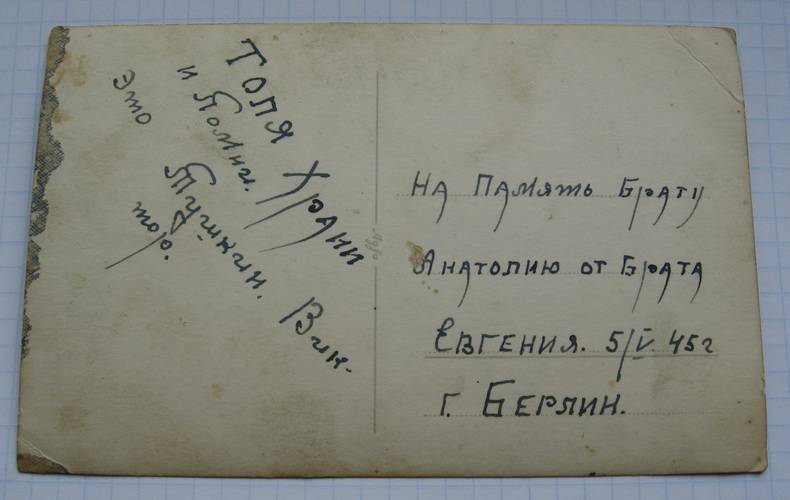 Толя Храни
и Помни. Вик-
Это
тор.
На Память Брату
Анатолию от Брата
Евгения. 5/V. 45г
г. Берлин.